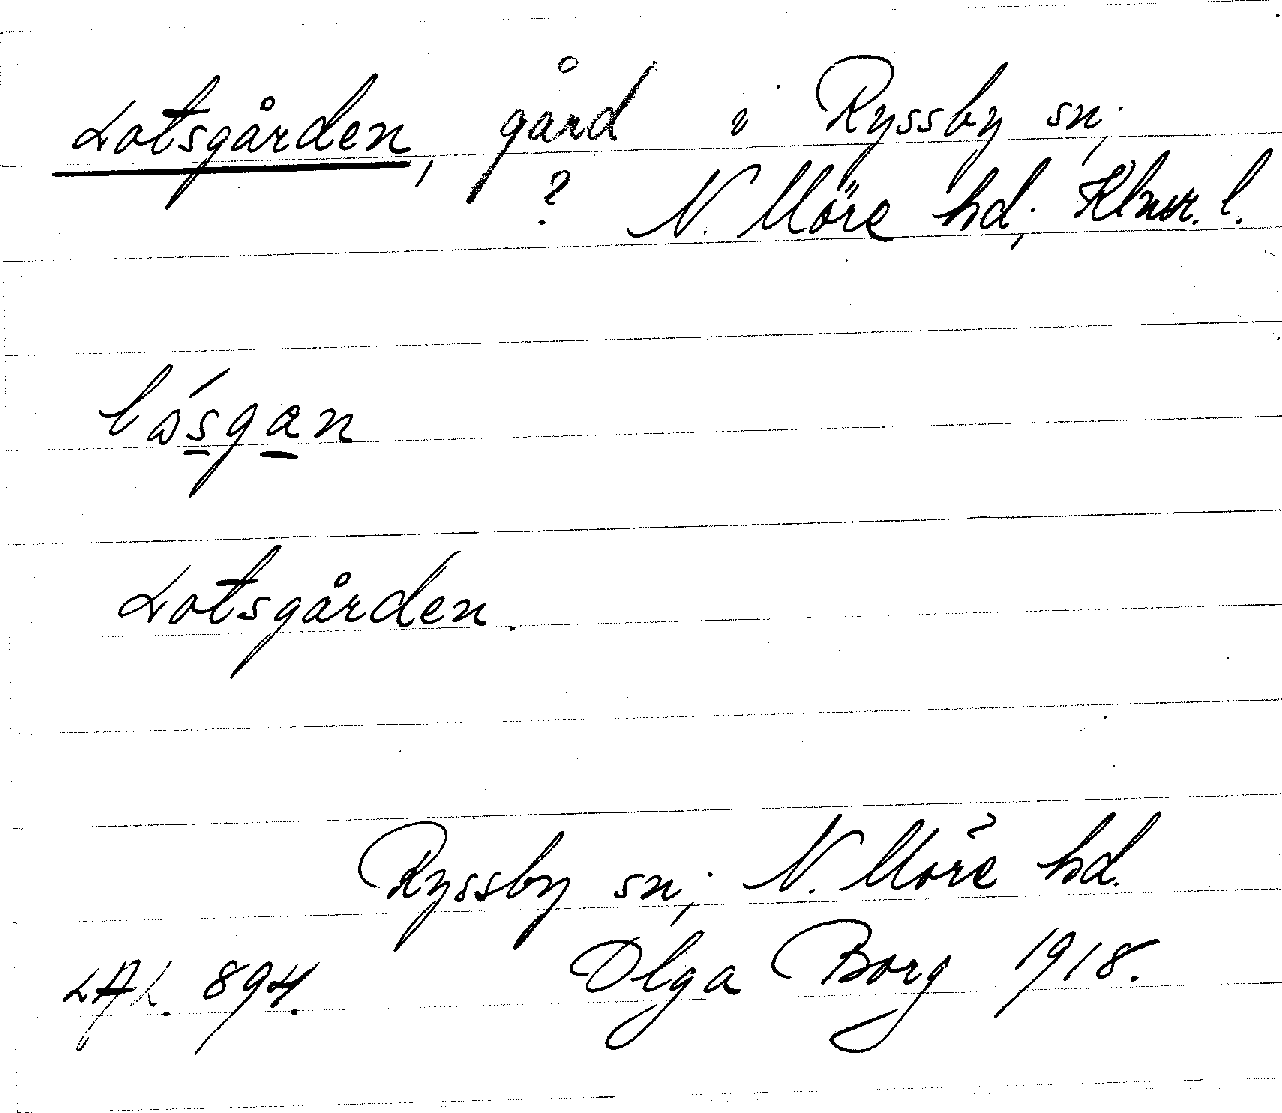 Lotsgården, gård i Ryssby sn;
? N. Möre hd; Klmr. l.
lósgan
Lotsgården.
Ryssby sn; N. Möre hd.
LAL. 894. Olga Borg 1918.